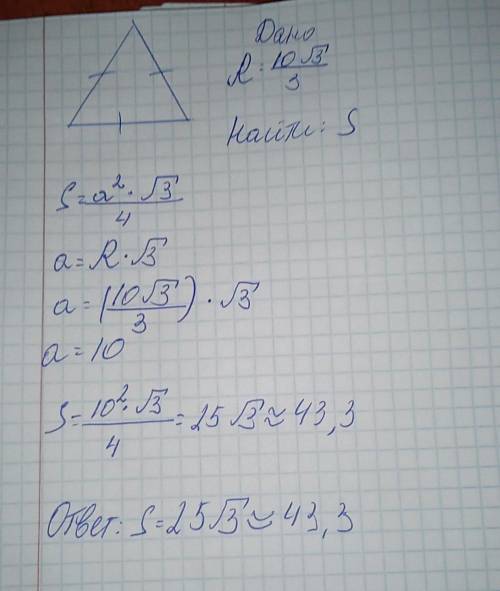 Дано
R = 10√3/3
Найти: S
S = a² · √3/4
a = R · √3
a = (10√3/3) · √3
a = 10
S = 10² · √3/4 = 25√3 ≈ 43,3
Ответ: S = 25√3 ≈ 43,3